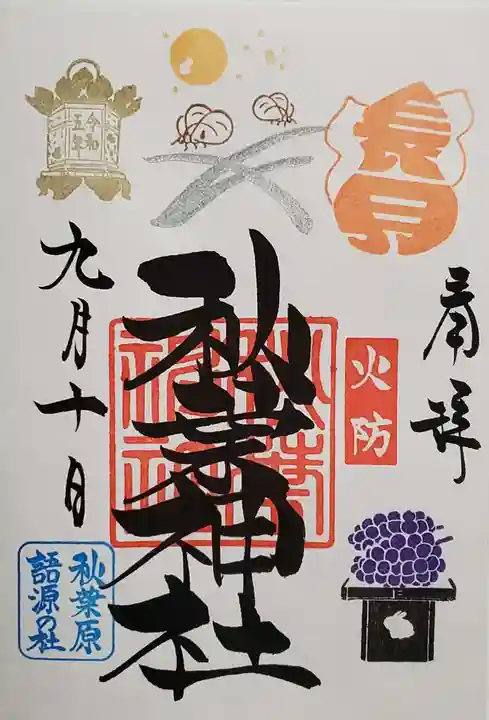 長月
奉拝
火防
秋葉神社
秋葉神社
令和
五年
九月十日
秋葉原
語源の社